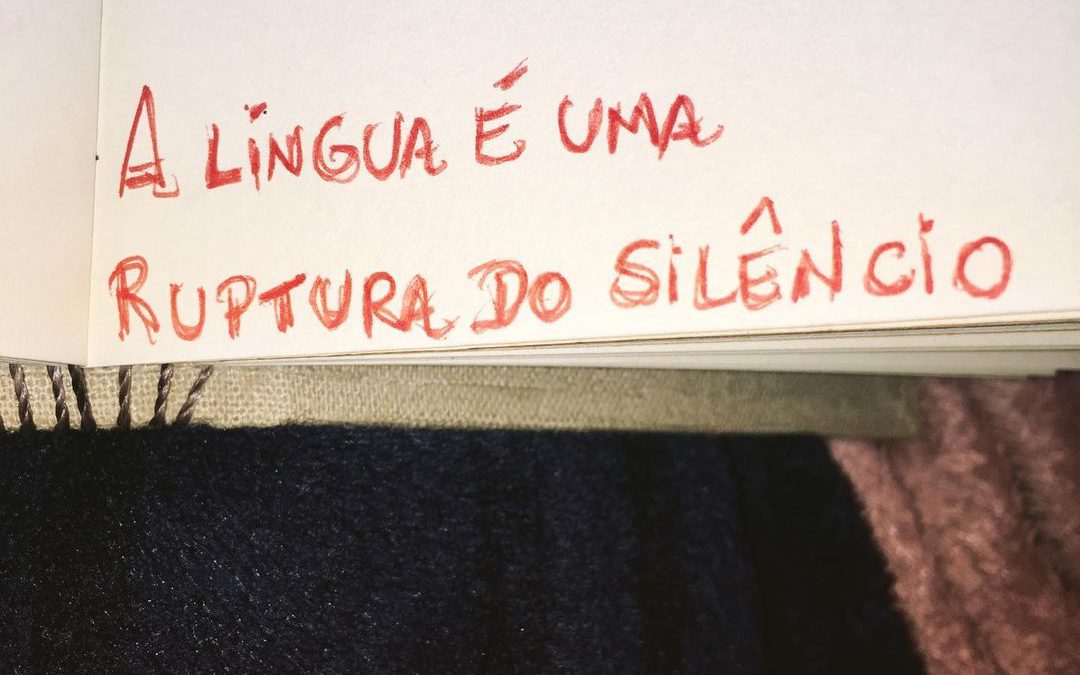 A LINGUA É UMA
RUPTURA DO SILÊNCIO